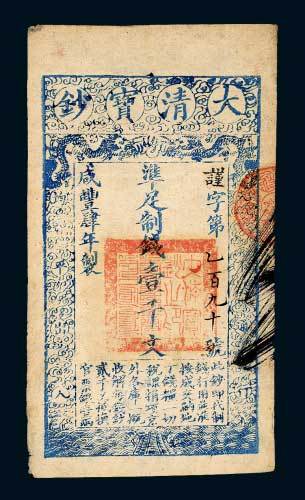 大清寶鈔
謹字第乙百九十號
準足制錢壹千文
咸豐肆年製
平出入
此鈔即代制
錢行用並准
按成交納地
丁錢糧一切
稅課捐項京
外各庫一概
收解每錢鈔
貳千文抵換
官票銀壹兩